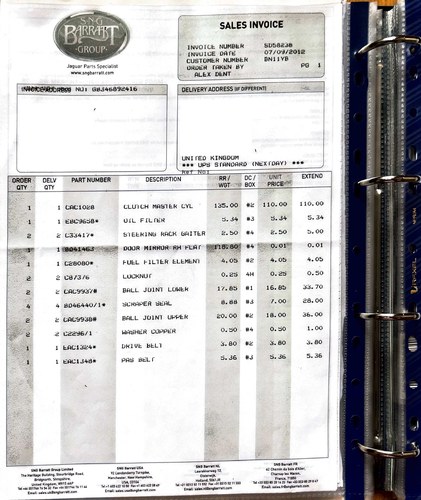 SNG
BARRATT
GROUP
Jaguar Parts Specialist
www.sngbarratt.com
SALES INVOICE
INVOICE NUMBER SD58238
INVOICE DATE 07/09/2012
CUSTOMER NUMBER BN11YB
ORDER TAKEN BY PG 1
ALEX DENT
INVOICE ADDRESS NO: GB346892416
DELIVERY ADDRESS (IF DIFFERENT)
UNITED KINGDOM
*** UPS STANDARD (NEXTDAY) ***
Ref No:
ORDER QTY DELV QTY PART NUMBER DESCRIPTION RR / WGT DC / BOX UNIT PRICE EXTEND
1 1 CAC1028 CLUTCH MASTER CYL 135.00 #2 110.00 110.00
1 1 EBC9658* OIL FILTER 5.34 #3 5.34 5.34
2 2 C33417* STEERING RACK GAITER 2.50 #4 2.50 5.00
1 1 BD41463 DOOR MIRROR RH FLAT 118.80 #4 0.01 0.01
1 1 C28080* FUEL FILTER ELEMENT 4.05 #2 4.05 4.05
2 2 C8737/6 LOCKNUT 0.25 4H 0.25 0.50
2 2 CAC9937# BALL JOINT LOWER 17.85 #1 16.85 33.70
4 4 BD46440/1* SCRAPER SEAL 8.88 #3 7.00 28.00
2 2 CAC9938# BALL JOINT UPPER 20.00 #2 18.00 36.00
2 2 C2296/1 WASHER COPPER 0.50 #4 0.50 1.00
1 1 EAC1324* DRIVE BELT 3.80 #2 3.80 3.80
1 1 EAC1348* PAS BELT 5.36 #3 5.36 5.36
SNG Barratt Group Limited
The Heritage Building, Stourbridge Road,
Bridgnorth, Shropshire,
United Kingdom, WV15 6AP
Email: sales.uk@sngbarratt.com
SNG Barratt USA
Manchester, New Hampshire,
USA, 03104
Email: sales.usa@sngbarratt.com
SNG Barratt NL
Laarakkerweg
Oisterwijk,
Holland
Email: sales.nl@sngbarratt.com
SNG Barratt FR
France
Email: sales.fr@sngbarratt.com